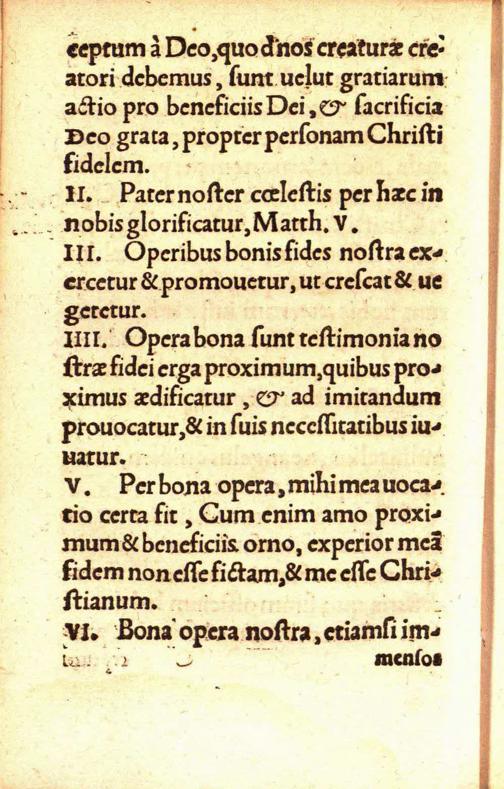 ceptum à Deo, quod nos creaturæ cre-
atori debemus, sunt uelut gratiarum
actio pro beneficiis Dei, & sacrificia
Deo grata, propter personam Christi
fidelem.
II. Pater noster cœlestis per hæc in
nobis glorificatur, Matth. V.
III. Operibus bonis fides nostra ex-
ercetur & promouetur, ut crescat & ue
getetur.
IIII. Opera bona sunt testimonia no
stræ fidei erga proximum, quibus pro-
ximus ædificatur, & ad imitandum
prouocatur, & in suis necessitatibus iu-
uatur.
V. Per bona opera, mihi mea uoca-
tio certa fit, Cum enim amo proxi-
mum & beneficiis orno, experior meā
fidem non esse fictam, & me esse Chri-
stianum.
VI. Bona opera nostra, etiamsi im-
mensos